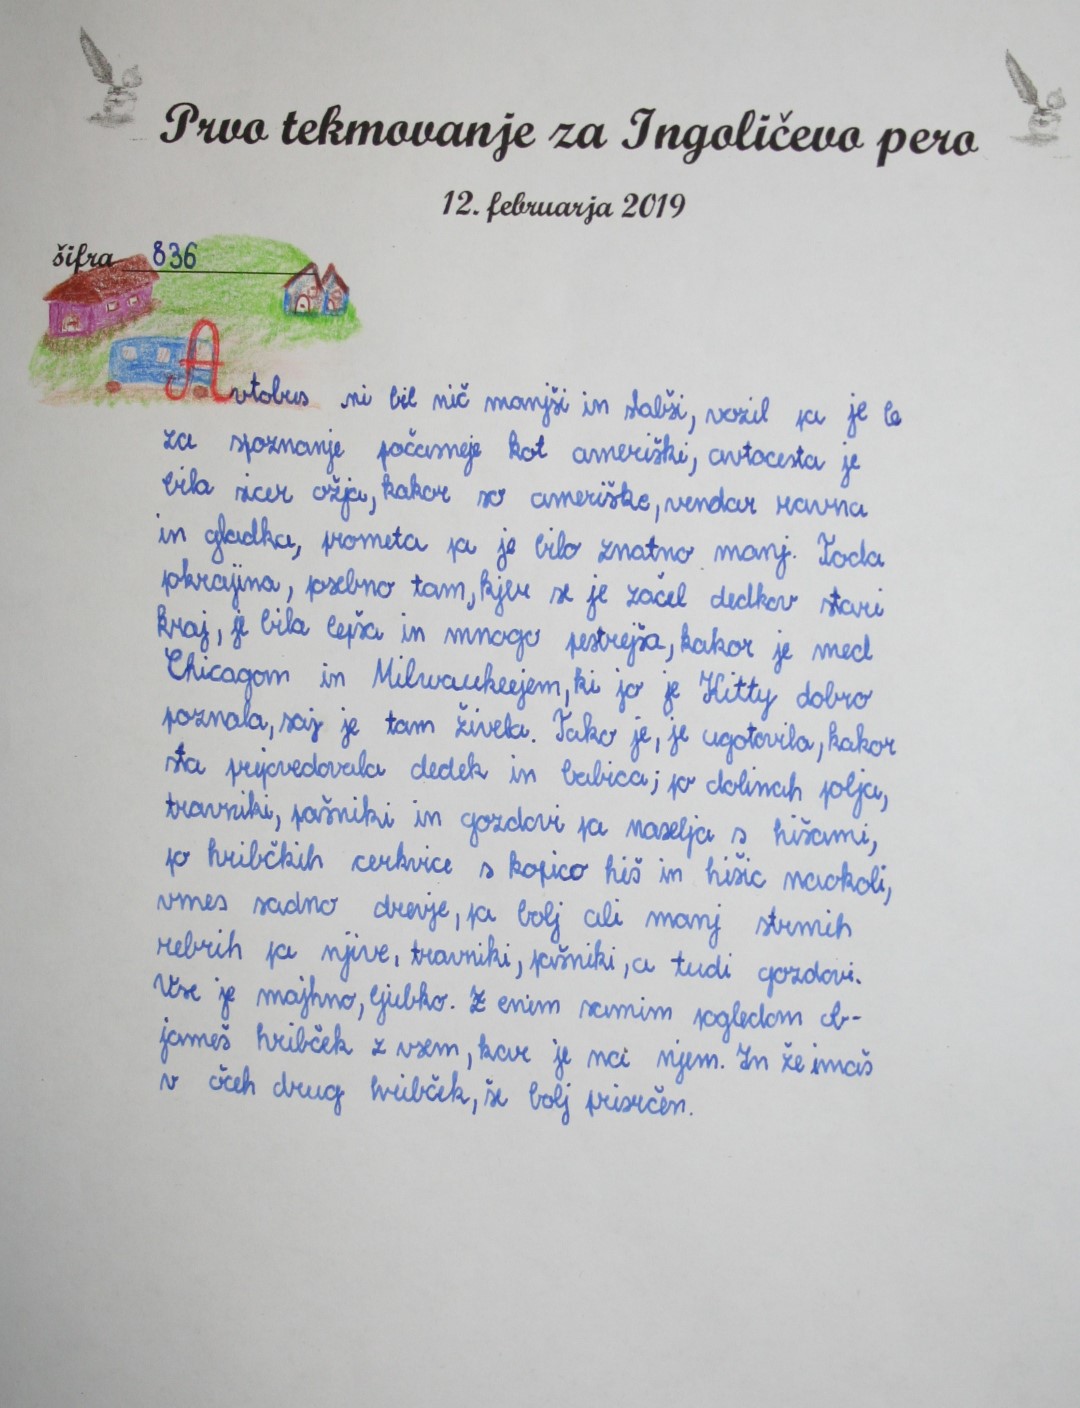 Prvo tekmovanje za Ingoličevo pero
12. februarja 2019
šifra 836
Avtobus ni bil nič manjši in slabši, vozil pa je le
za spoznanje počasneje kot ameriški, avtocesta je
bila sicer ožja, kakor so ameriške, vendar ravna
in gladka, prometa pa je bilo znatno manj. Toda
pokrajina, posebno tam, kjer se je začel dedkov stari
kraj, je bila lepša in mnogo pestrejša, kakor je med
Chicagom in Milwaukeejem, ki jo je Kitty dobro
poznala, saj je tam živela. Tako je, je ugotovila, kakor
sta pripovedovala dedek in babica; po dolinah polja,
travniki, pašniki in gozdovi pa naselja s hišami,
po hribčkih cerkvice s kopico hiš in hišic naokoli,
vmes sadno drevje, pa bolj ali manj strmih
rebrih pa njive, travniki, pašniki, a tudi gozdovi.
Vse je majhno, ljubko. Z enim samim pogledom ob-
jameš hribček z vsem, kar je na njem. In že imaš
v očeh drug hribček, še bolj prisrčen.